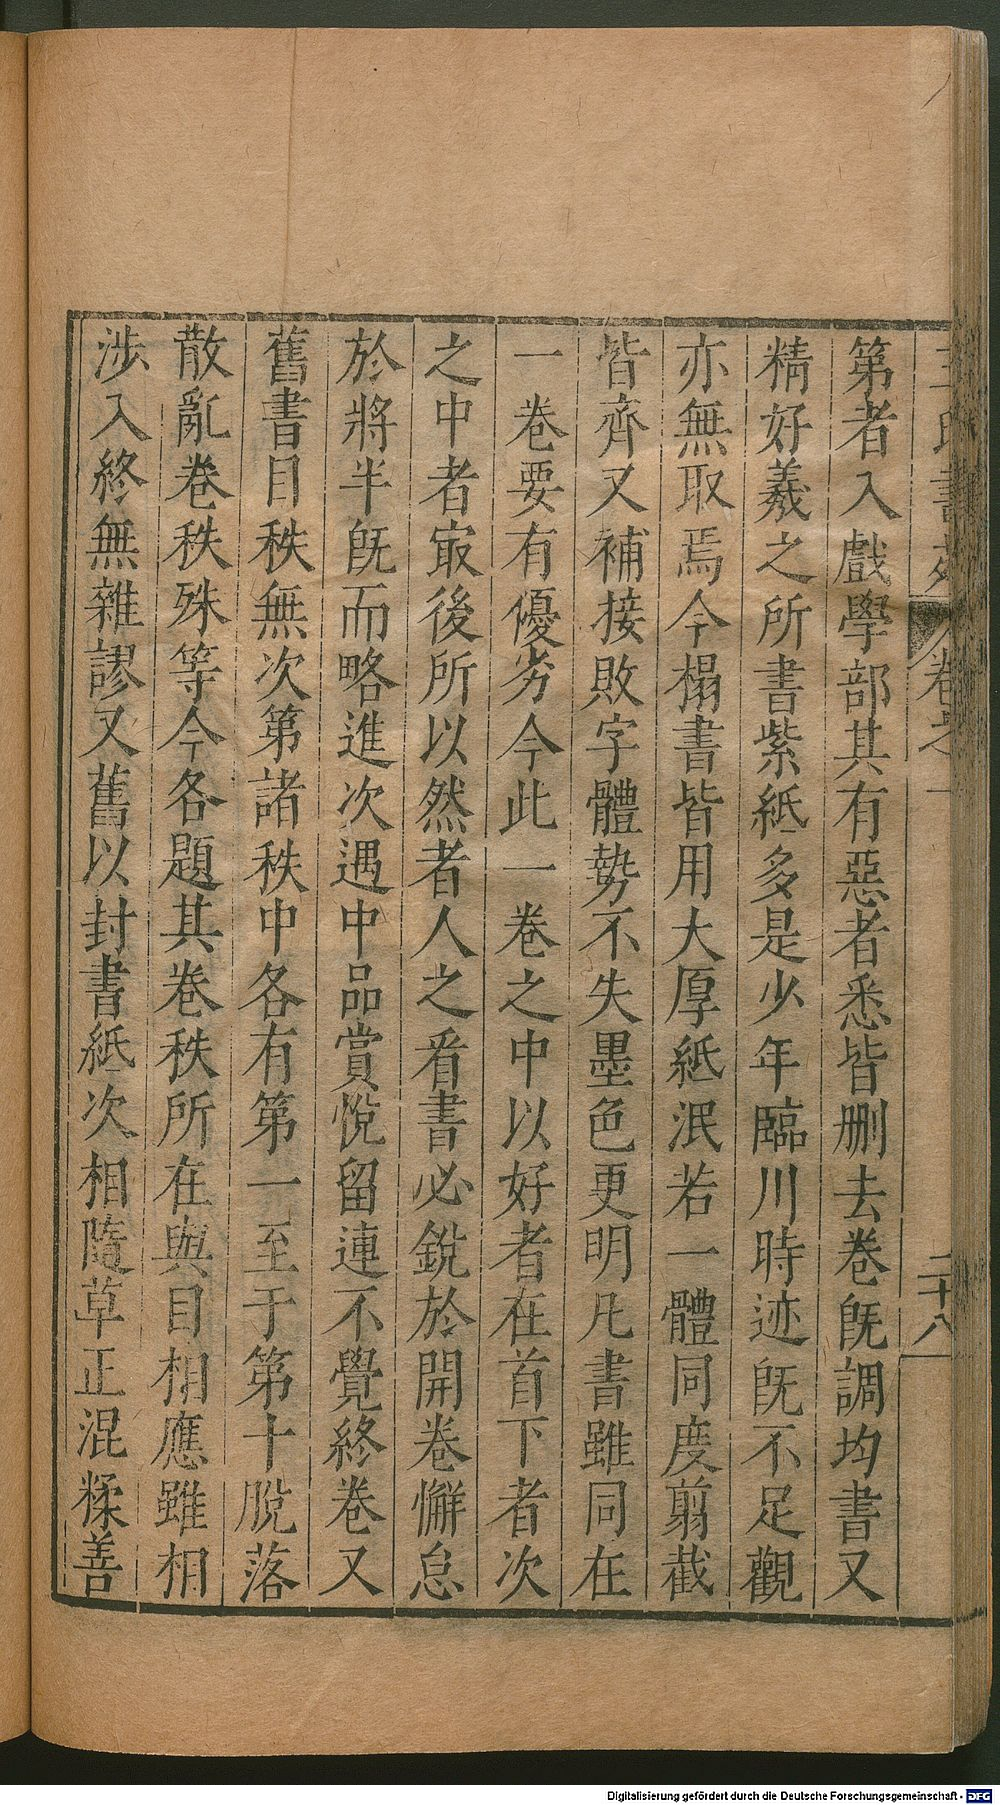 王氏書苑 卷之一 二十八
第者入戲學部其有惡者悉皆刪去卷旣調均書又
精好羲之所書紫紙多是少年臨川時迹旣不足觀
亦無取焉今榻書皆用大厚紙泯若一體同度剪截
皆齊又補接敗字體勢不失墨色更明凡書雖同在
一卷要有優劣今此一卷之中以好者在首下者次
之中者㝡後所以然者人之看書必銳於開卷懈怠
於將半旣而略進次遇中品賞悅留連不覺終卷又
舊書目秩無次第諸秩中各有第一至于第十脫落
散亂卷秩殊等今各題其卷秩所在與目相應雖相
涉入終無雜謬又舊以封書紙次相隨草正混糅善
Digitalisierung gefördert durch die Deutsche Forschungsgemeinschaft - DFG